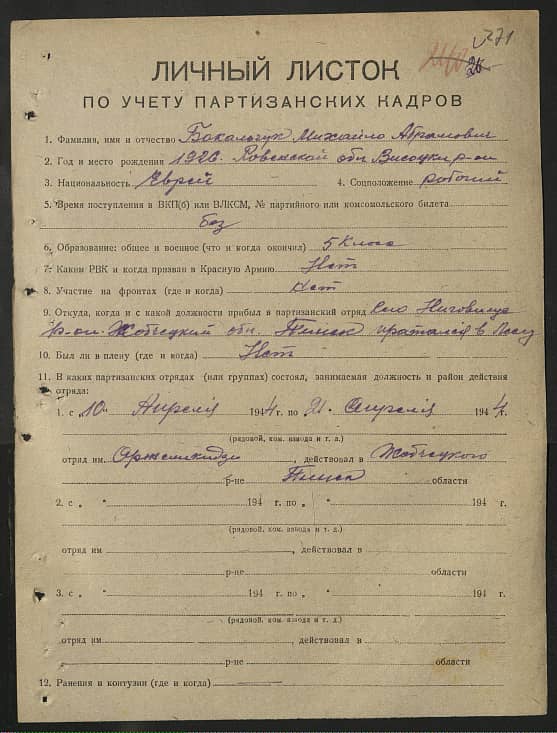 271
26
ЛИЧНЫЙ ЛИСТОК
ПО УЧЕТУ ПАРТИЗАНСКИХ КАДРОВ
1. Фамилия, имя и отчество Бокальчук Михайло Абрамович
2. Год и место рождения 1926. Ровенской обл Висоцки р-он
3. Национальность Еврей 4. Соцположение робочий
5. Время поступления в ВКП(б) или ВЛКСМ, № партийного или комсомольского билета
без
6. Образование: общее и военное (что и когда окончил) 5 класа
7. Каким РВК и когда призван в Красную Армию Нет
8. Участие на фронтах (где и когда) Нет
9. Откуда, когда и с какой должности прибыл в партизанский отряд село
р-он. обл. Пинск в Лесу
10. Был ли в плену (где и когда) Нет
11. В каких партизанских отрядах (или группах) состоял, занимаемая должность и район действия
отряда:
1. с 10. Апреля 1944 г. по 21. Апреля 1944 г.
(рядовой, ком. взвода и т. д.)
отряд им. , действовал в
р-не Пинск области
2. с „ " 194 г. по „ " 194 г.
(рядовой, ком. взвода и т. д.)
отряд им , действовал в
р-не области
3. с „ " 194 г. по „ " 194 г.
(рядовой, ком. взвода и т. д.)
отряд им , действовал в
р-не области
12. Ранения и контузии (где и когда)